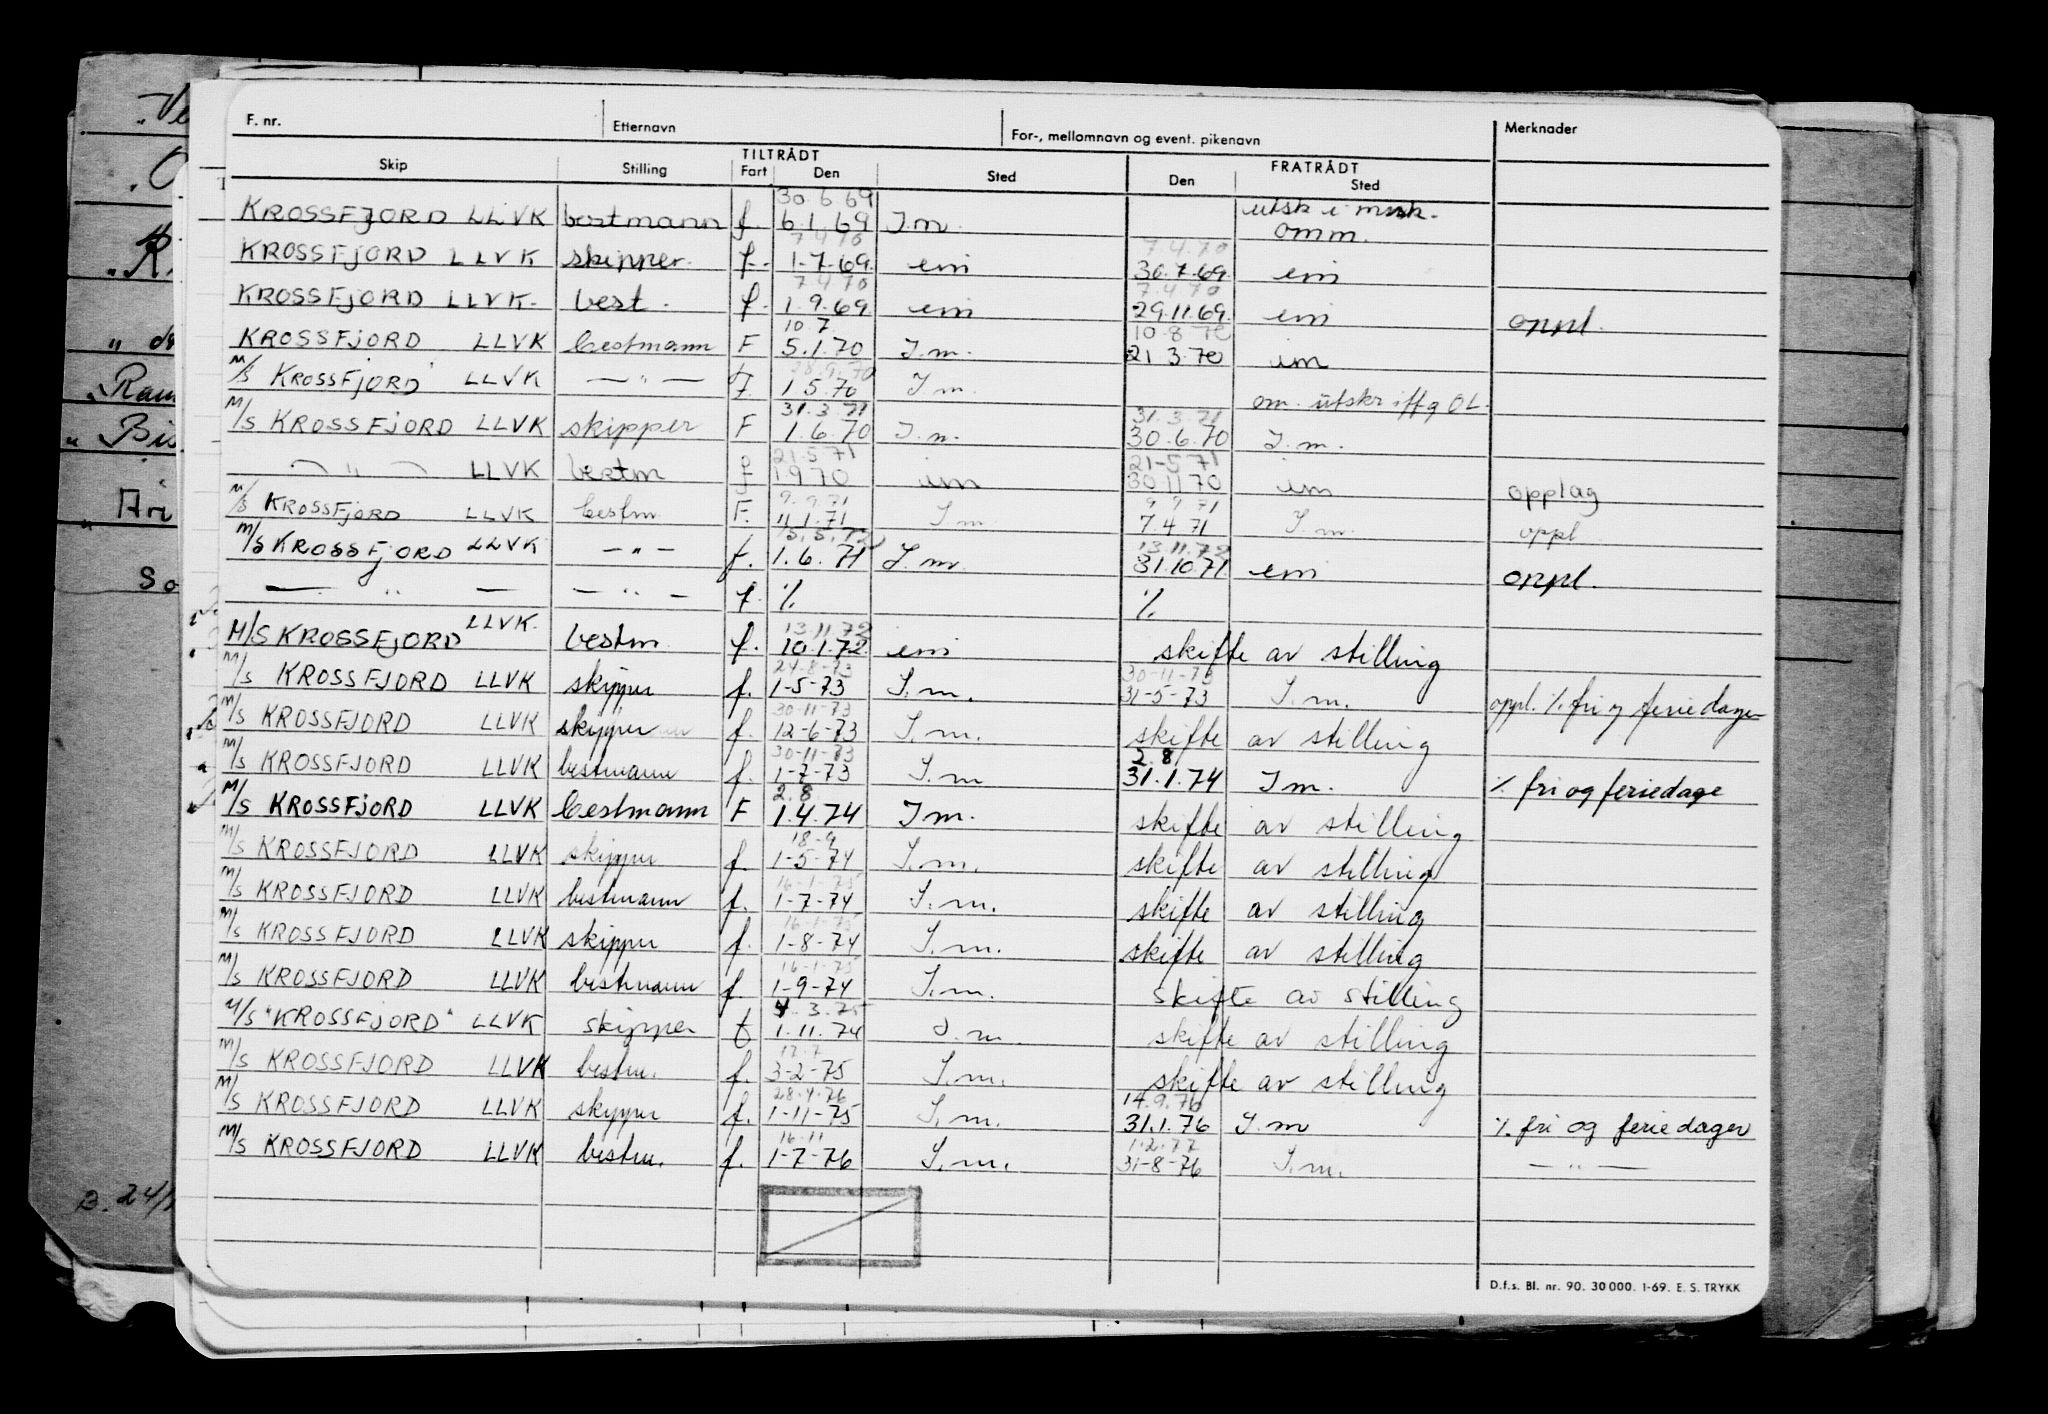 F. nr. Etternavn For-, mellomnavn og event. pikenavn Merknader
TILTRÅDT FRATRÅDT
Skip Stilling Fart Den Sted Den Sted
30.6 69 utsk i msk.
KROSSFJORD LLVK bestmann f. 6.1.69 I.m. omm.
7 4 70 7.4.70
KROSSFJORD LLVK skipper. f. 1-7-69. em 30.7.69. em
7 4 70 7.4.70
KROSSFJORD LLVK. best. f. 1.9.69 em 29.11.69. em oppl.
10.7 10.8.70
KROSSFJORD LLVK bestmann F 5.1.70 I.m. 21 3.70 im
28.9.70
M/S KROSSFJORD LLVK — " — F. 1 5.70 I m. om. utskr iflg OL.
31.3 71 31.3.71
M/S KROSSFJORD LLVK skipper F 1.6.70 I.m. 30.6.70 I.m.
21.5 71 21-5 71
— " — LLVK bestm f 1 9 70 im 30.11 70 im opplag
9. 9.71 9 9 71
M/S KROSSFJORD LLVK bestm. F. 11.1.71 I m. 7.4 71 I.m. oppl
15.5.72 13.11.72
M/S KROSSFJORD LLVK — " — f. 1.6.71 I.m. 31.10.71. em oppl.
— " — — " — f. % %
13.11 72
M/S KROSSFJORD LLVK. bestm. f. 10.1.72 em skifte av stilling
24.8-73 30-11-73
M/S KROSSFJORD LLVK skipper f. 1-5-73 I.m. 31-5-73 I.m. oppl. % fri og feriedager
30-11-73
M/S KROSSFJORD LLVK skipper f. 12-6-73 I.m. skifte av stilling
30-11-73 2.8
M/S KROSSFJORD LLVK bestmann f. 1-7-73 I.m 31.1.74 I m. % fri og feriedage
2.8.
M/S KROSSFJORD LLVK bestmann F 1.4.74 I m. skifte av stilling
18-9
M/S KROSSFJORD LLVK skipper f. 1-5-74 I.m. skifte av stilling
16-1-75
M/S KROSSFJORD LLVK bestmann f. 1-7-74 I.m. skifte av stilling
16-1-75
M/S KROSSFJORD LLVK skipper f. 1-8-74 I.m. skifte av stilling
16-1-75
M/S KROSSFJORD LLVK bestmann f. 1-9-74 I.m. skifte av stilling
4.3.75
M/S "KROSSFJORD" LLVK skipper f 1.11.74 I.m skifte av stilling
17.7
M/S KROSSFJORD LLVK bestm. f. 3-2-75 I.m. skifte av stilling
28.4.76 14.9.76
M/S KROSSFJORD LLVK skipper f. 1-11-75 I.m. 31.1.76 I.m % fri og feriedager
16-11 1.2.77
M/S KROSSFJORD LLVK bestm. f. 1-7-76 I.m. 31-8-76 I.m. — " —
D.f.s. Bl. nr. 90. 30 000. 1-69. E. S. TRYKK